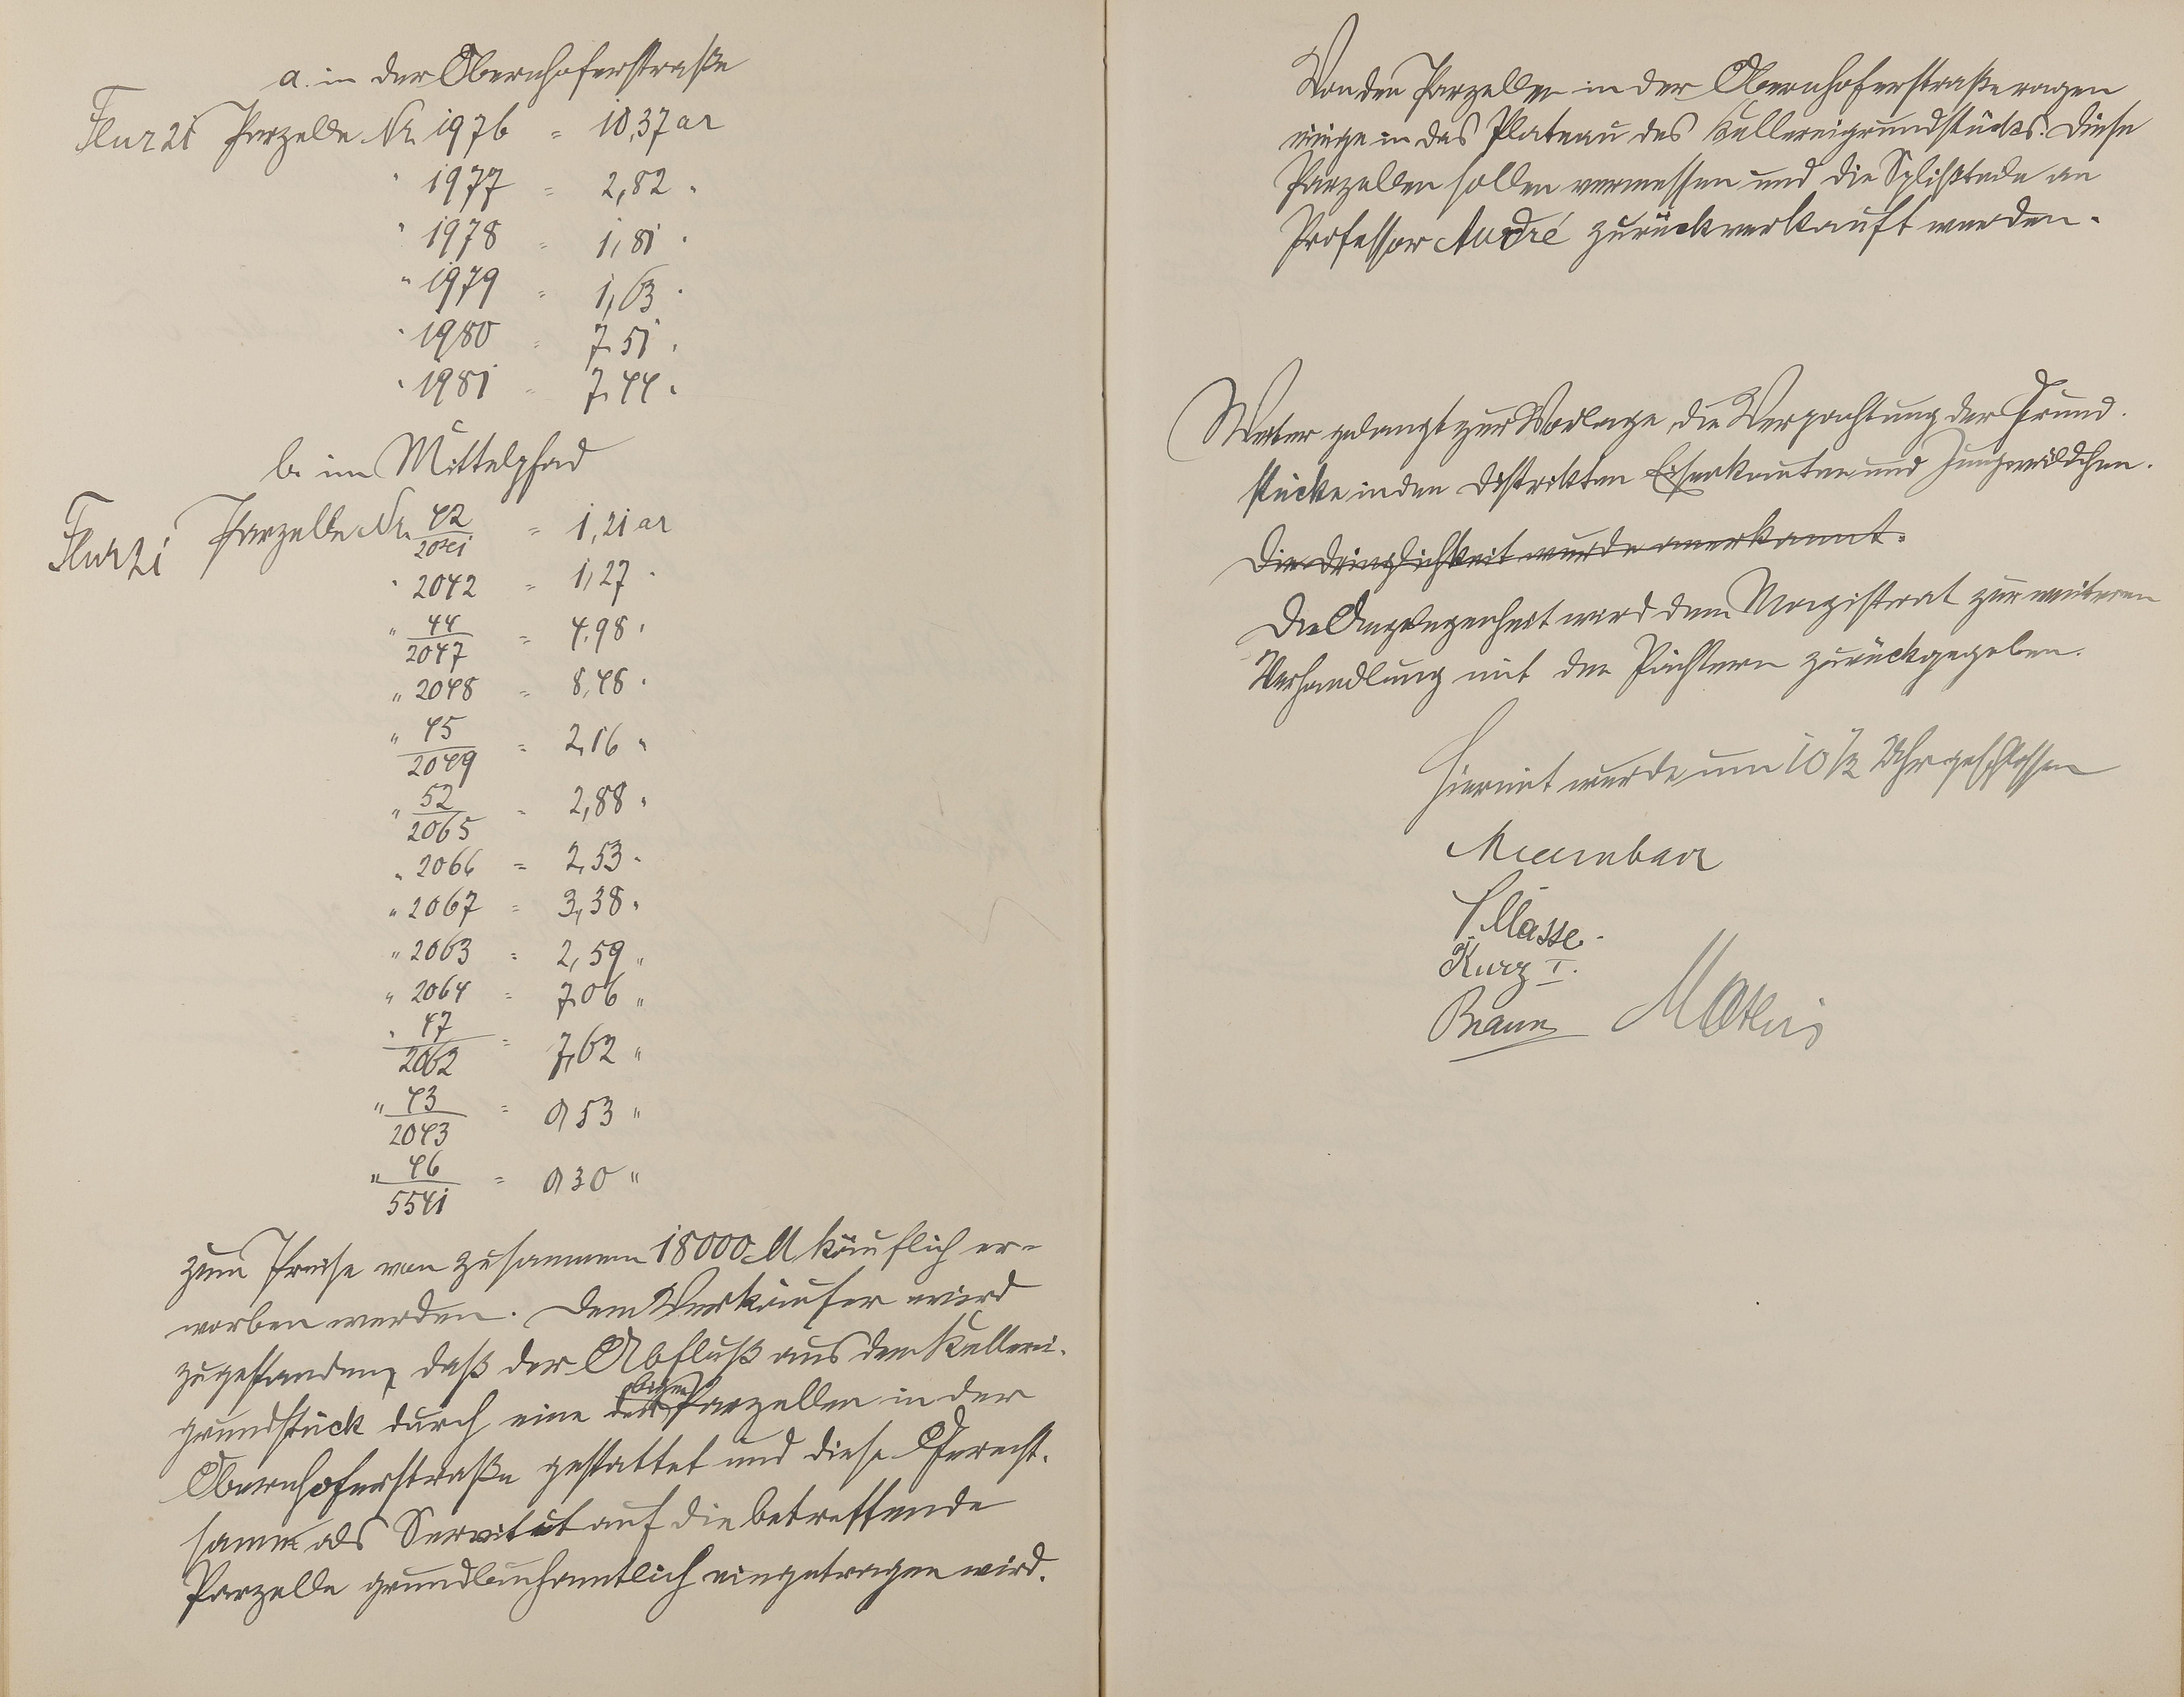 a. in der Obernhoferstraße
Flur 21 Parzelle Nr. 1976 = 10,37 ar
" 1977 = 2,82 "
" 1978 = 1,81 "
" 1979 = 1,63 "
" 1980 = 7,51 "
" 1981 = 7,44 "
b. im Mittelpfad
Flur 21 Parzelle Nr. 42/2041 = 1,21 ar
" 2042 = 1,27 "
" 44/2047 = 4,98 "
" 2048 = 8,48 "
" 45/2049 = 2,16 "
" 52/2065 = 2,88 "
" 2066 = 2,53 "
" 2067 = 3,38 "
" 2063 = 2,59 "
" 2064 = 7,06 "
" 47/2062 = 7,62 "
" 43/2043 = 0,53 "
" 46/5541 = 0,30 "
zum Preise von zusammen 18000 M käuflich er-
worben werden. Dem Verkäufer wird
zugestanden, daß der Abfluß aus dem Kellerei-
grundstück durch eine der obigen Parzellen in der
Obernhoferstraße gestattet und diese Gerecht-
same als Servitut auf die betreffende
Parzelle grundbuchamtlich eingetragen wird.
Von den Parzellen in der Obernhoferstraße ragen
einige in das Plateau des Kellereigrundstücks. Diese
Parzellen sollen vermessen und die Splißteile an
Professor André zurückverkauft werden.
Weiter gelangt zur Vorlage, die Verpachtung der Grund-
stücke in den Distrikten Eiserkauten und Jungwäldchen.
Die Dringlichkeit wurde anerkannt.
Die Angelegenheit wird dem Magistrat zur weiteren
Verhandlung mit den Pächtern zurückgegeben.
Hiermit wurde um 10 1/2 Uhr geschlossen
Kurz I.
Braun